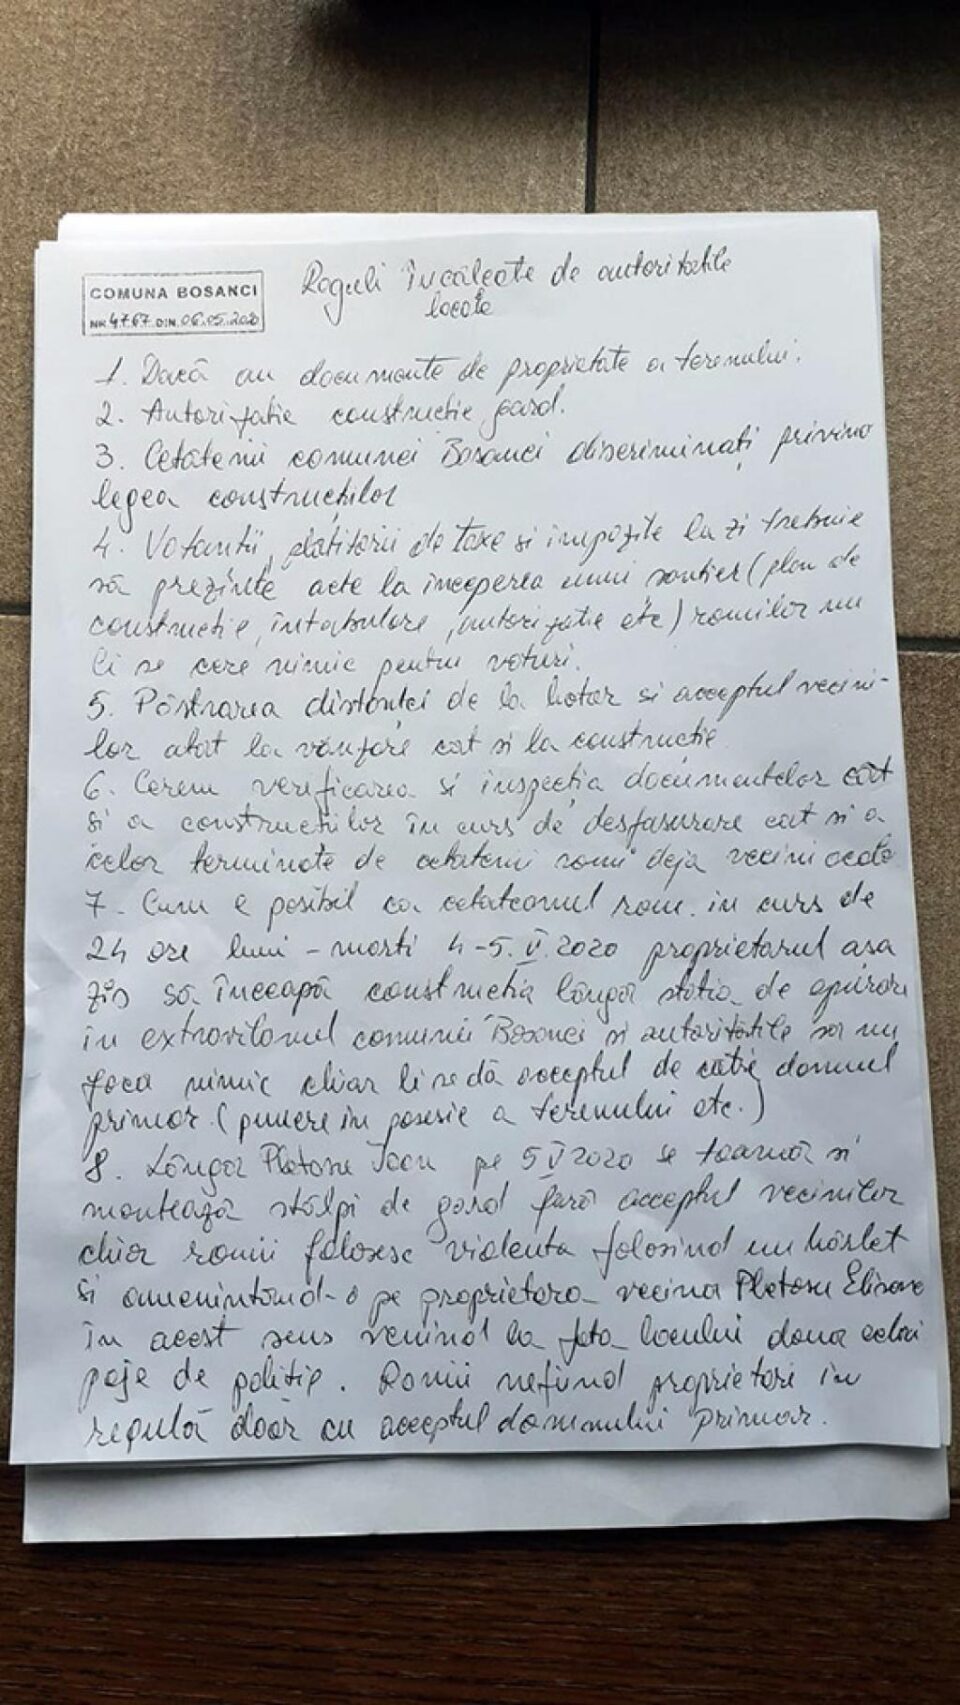 COMUNA BOSANCI
NR. 4767 DIN 06.05.2020
Reguli încălcate de autoritatile
locale
1. Dacă au documente de proprietate a terenului.
2. Autorizatie constructie gard.
3. Cetatenii comunei Bosanci discriminați privind
legea constructiilor
4. Votantii, platitorii de taxe si impozite la zi trebuie
să prezinte acte la inceperea unui santier (plan de
constructie, intabulare, autorizatie etc) romilor nu
li se cere nimic pentru voturi.
5. Păstrarea distanței de la hotar si acceptul vecini-
lor atat la vânzare cat si la constructie
6. Cerem verificarea si inspectia documentelor cât
si a constructiilor în curs de desfasurare cat si a
celor terminate de cetateni romi deja vecini
7. Cum e posibil ca cetateanul rom. in curs de
24 ore luni - marti 4-5.V.2020 proprietarul asa
zis să înceapă constructia lângă statia de epurare
in extravilanul comunii Bosanci si autoritătile sa nu
faca nimic chiar li se dă acceptul de catre domnul
primar. (punere in posesie a terenului etc.)
8. Lângă Pletosu Ioan pe 5 V 2020 se toarnă si
montează stâlpi de gard fară acceptul vecinilor
chiar romii folosesc violenta folosind un hârlet
si amenintand-o pe proprietara vecina Pletosu
în acest sens venind la fata locului doua
de politie. Romii nefiind proprietari in
regulă doar cu acceptul domnului primar.